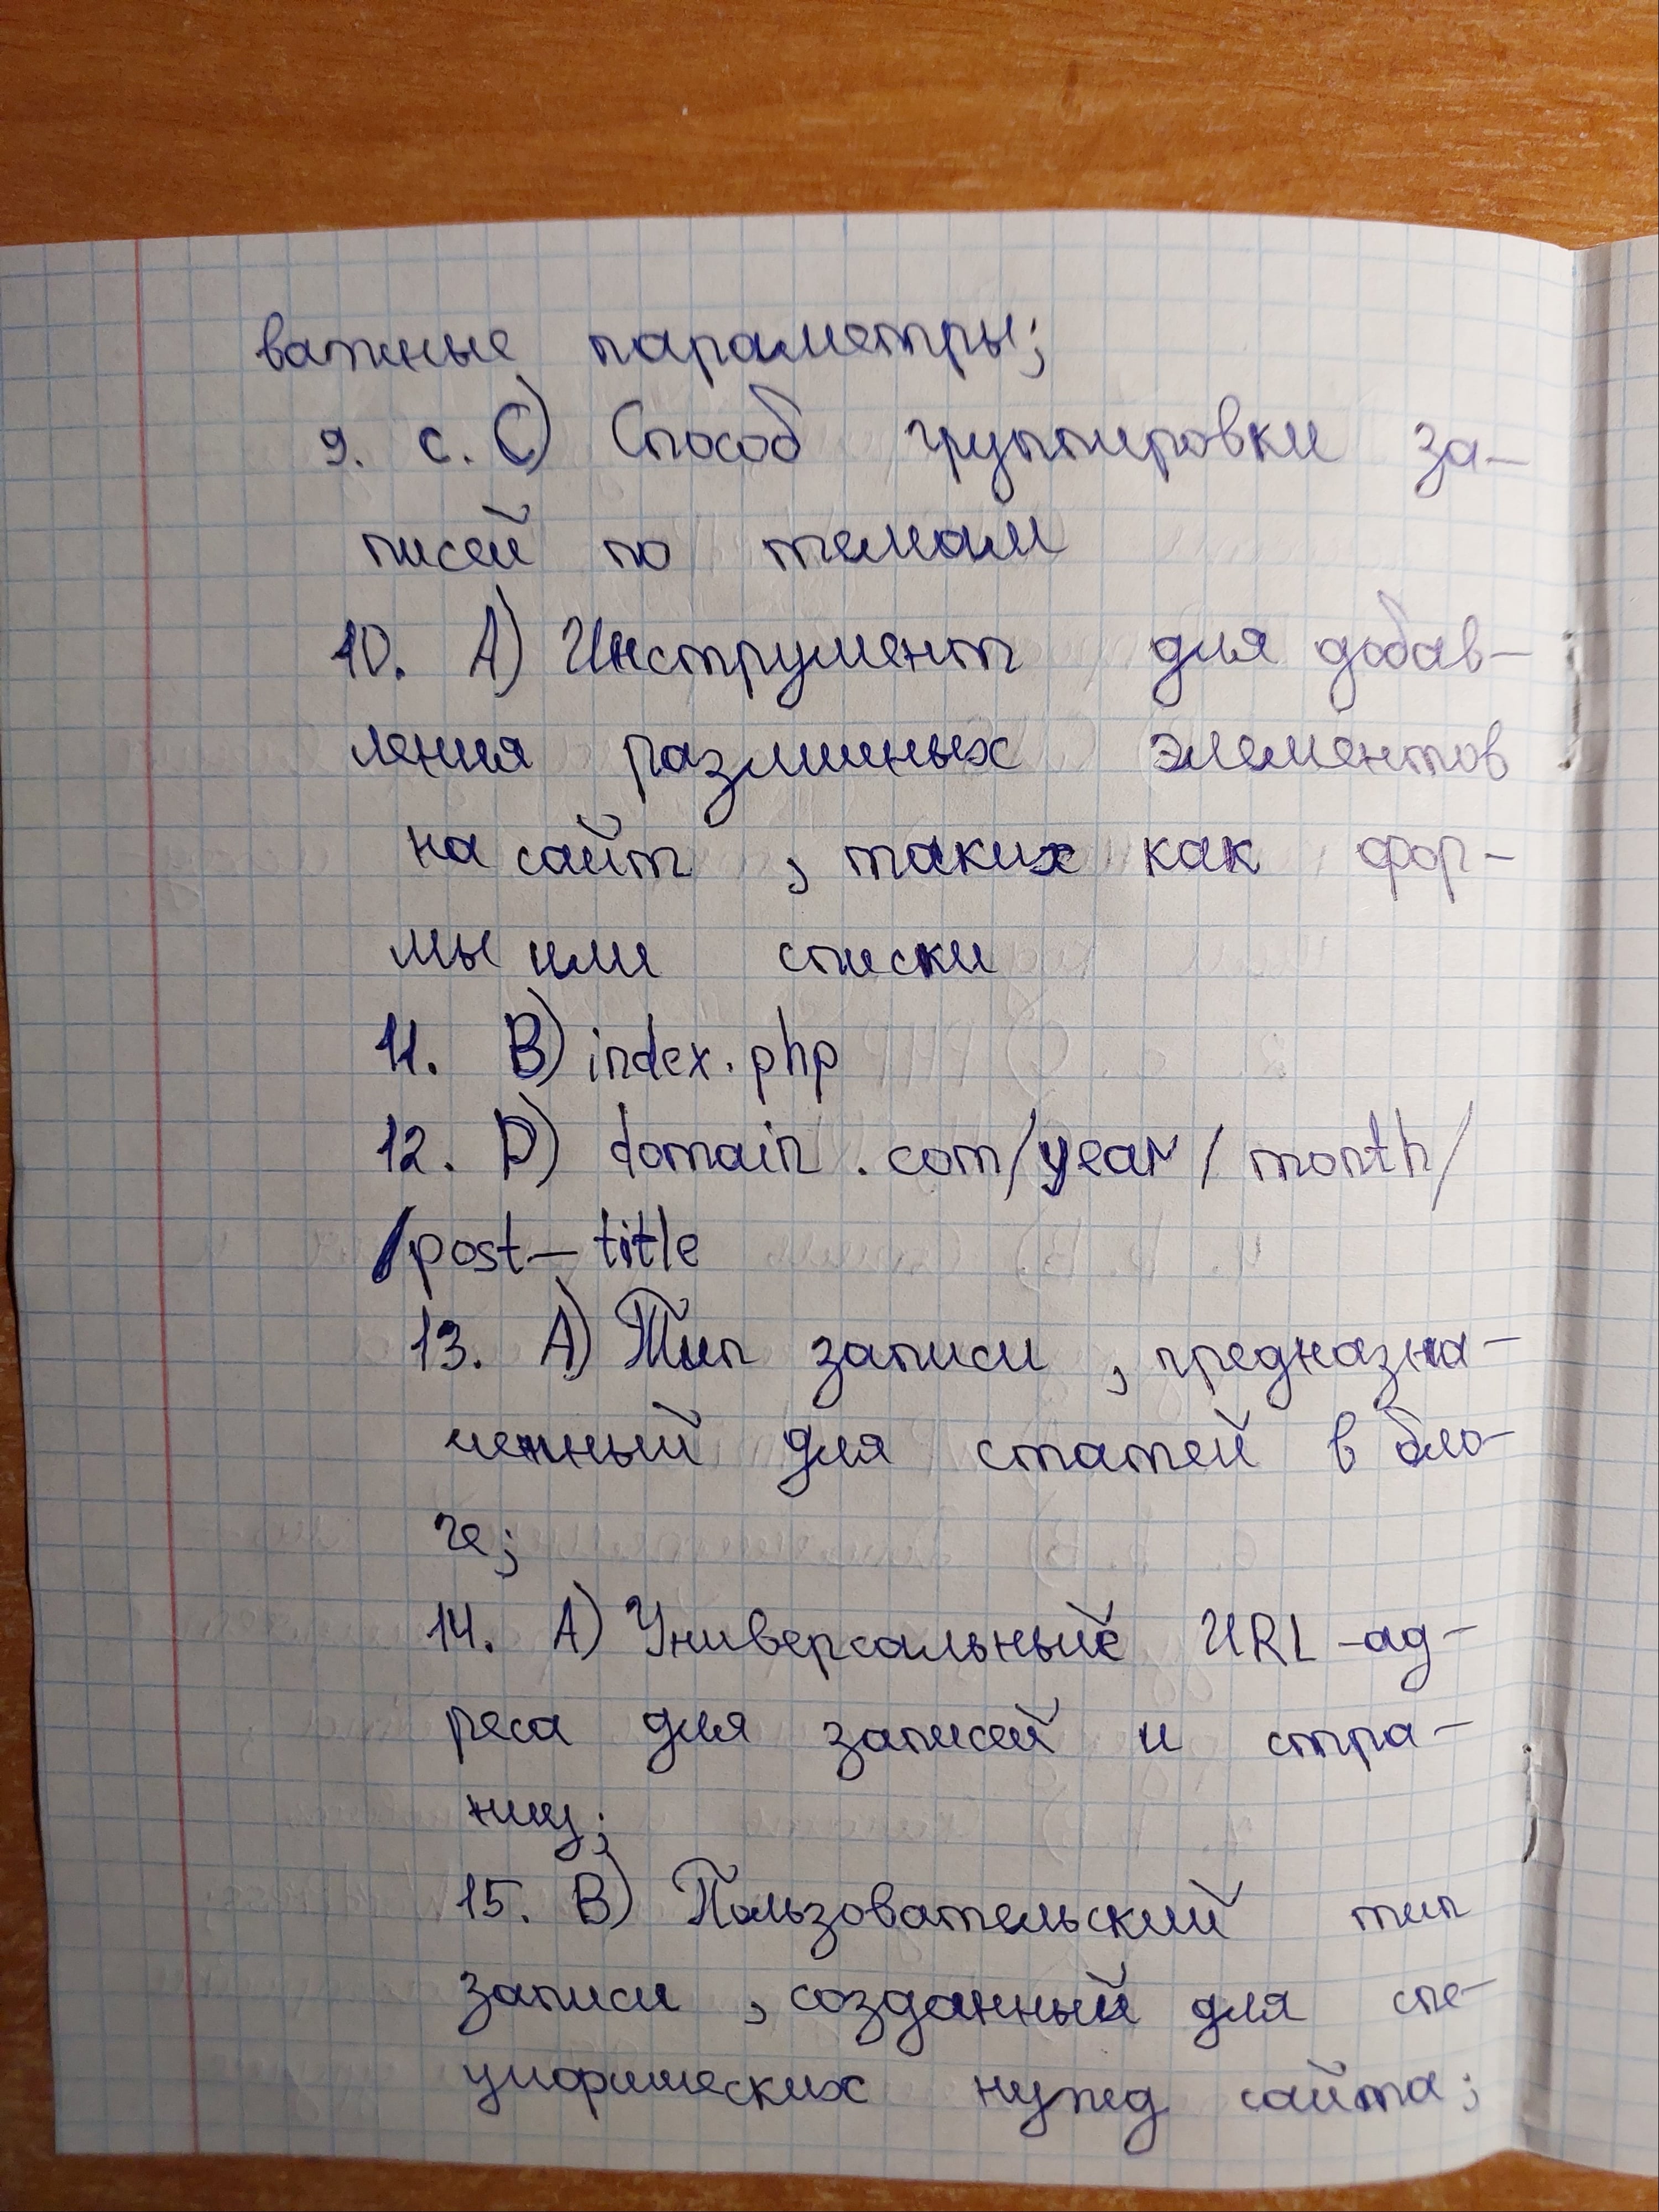 важные параметры;
9. с. С) Способ группировки за-
писей по темам
10. А) Инструмент для добав-
ления различных элементов
на сайт , таких как фор-
мы или списки
11. B) index.php
12. D) domain.com/year/month/
/post-title
13. А) Тип записи , предназна-
ченный для статей в бло-
ге;
14. А) Универсальные URL-ад-
реса для записей и стра-
ниц;
15. В) Пользовательский тип
записи , созданный для спе-
цифических нужд сайта;